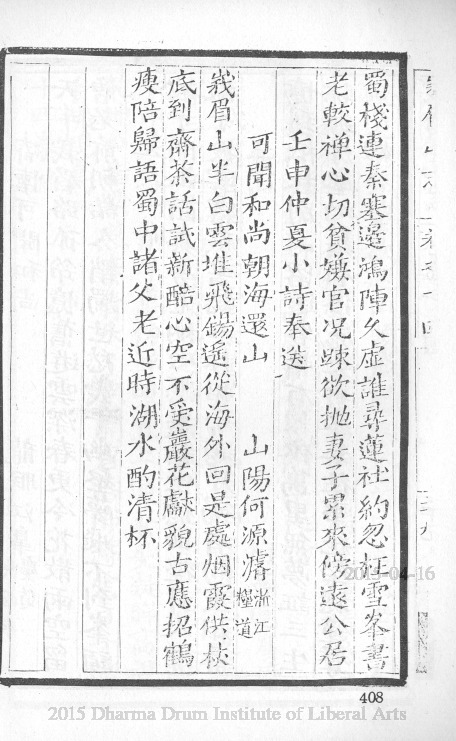 蜀棧連秦塞邊鴻陣久虛誰尋蓮社約忽枉雪峯書
老較禅心切貧嫌官况踈欲拋妻子累來傍遠公居
壬申仲夏小詩奉送
可聞和尚朝海還山 山陽何源濬浙江糧道
峩眉山半白雲堆飛錫遙從海外回是處烟霞供杖
底到齋茶話試新醅心空不受巖花獻貌古應招鶴
瘦陪歸語蜀中諸父老近時湖水酌清杯
2015-04-16
408
2015 Dharma Drum Institute of Liberal Arts